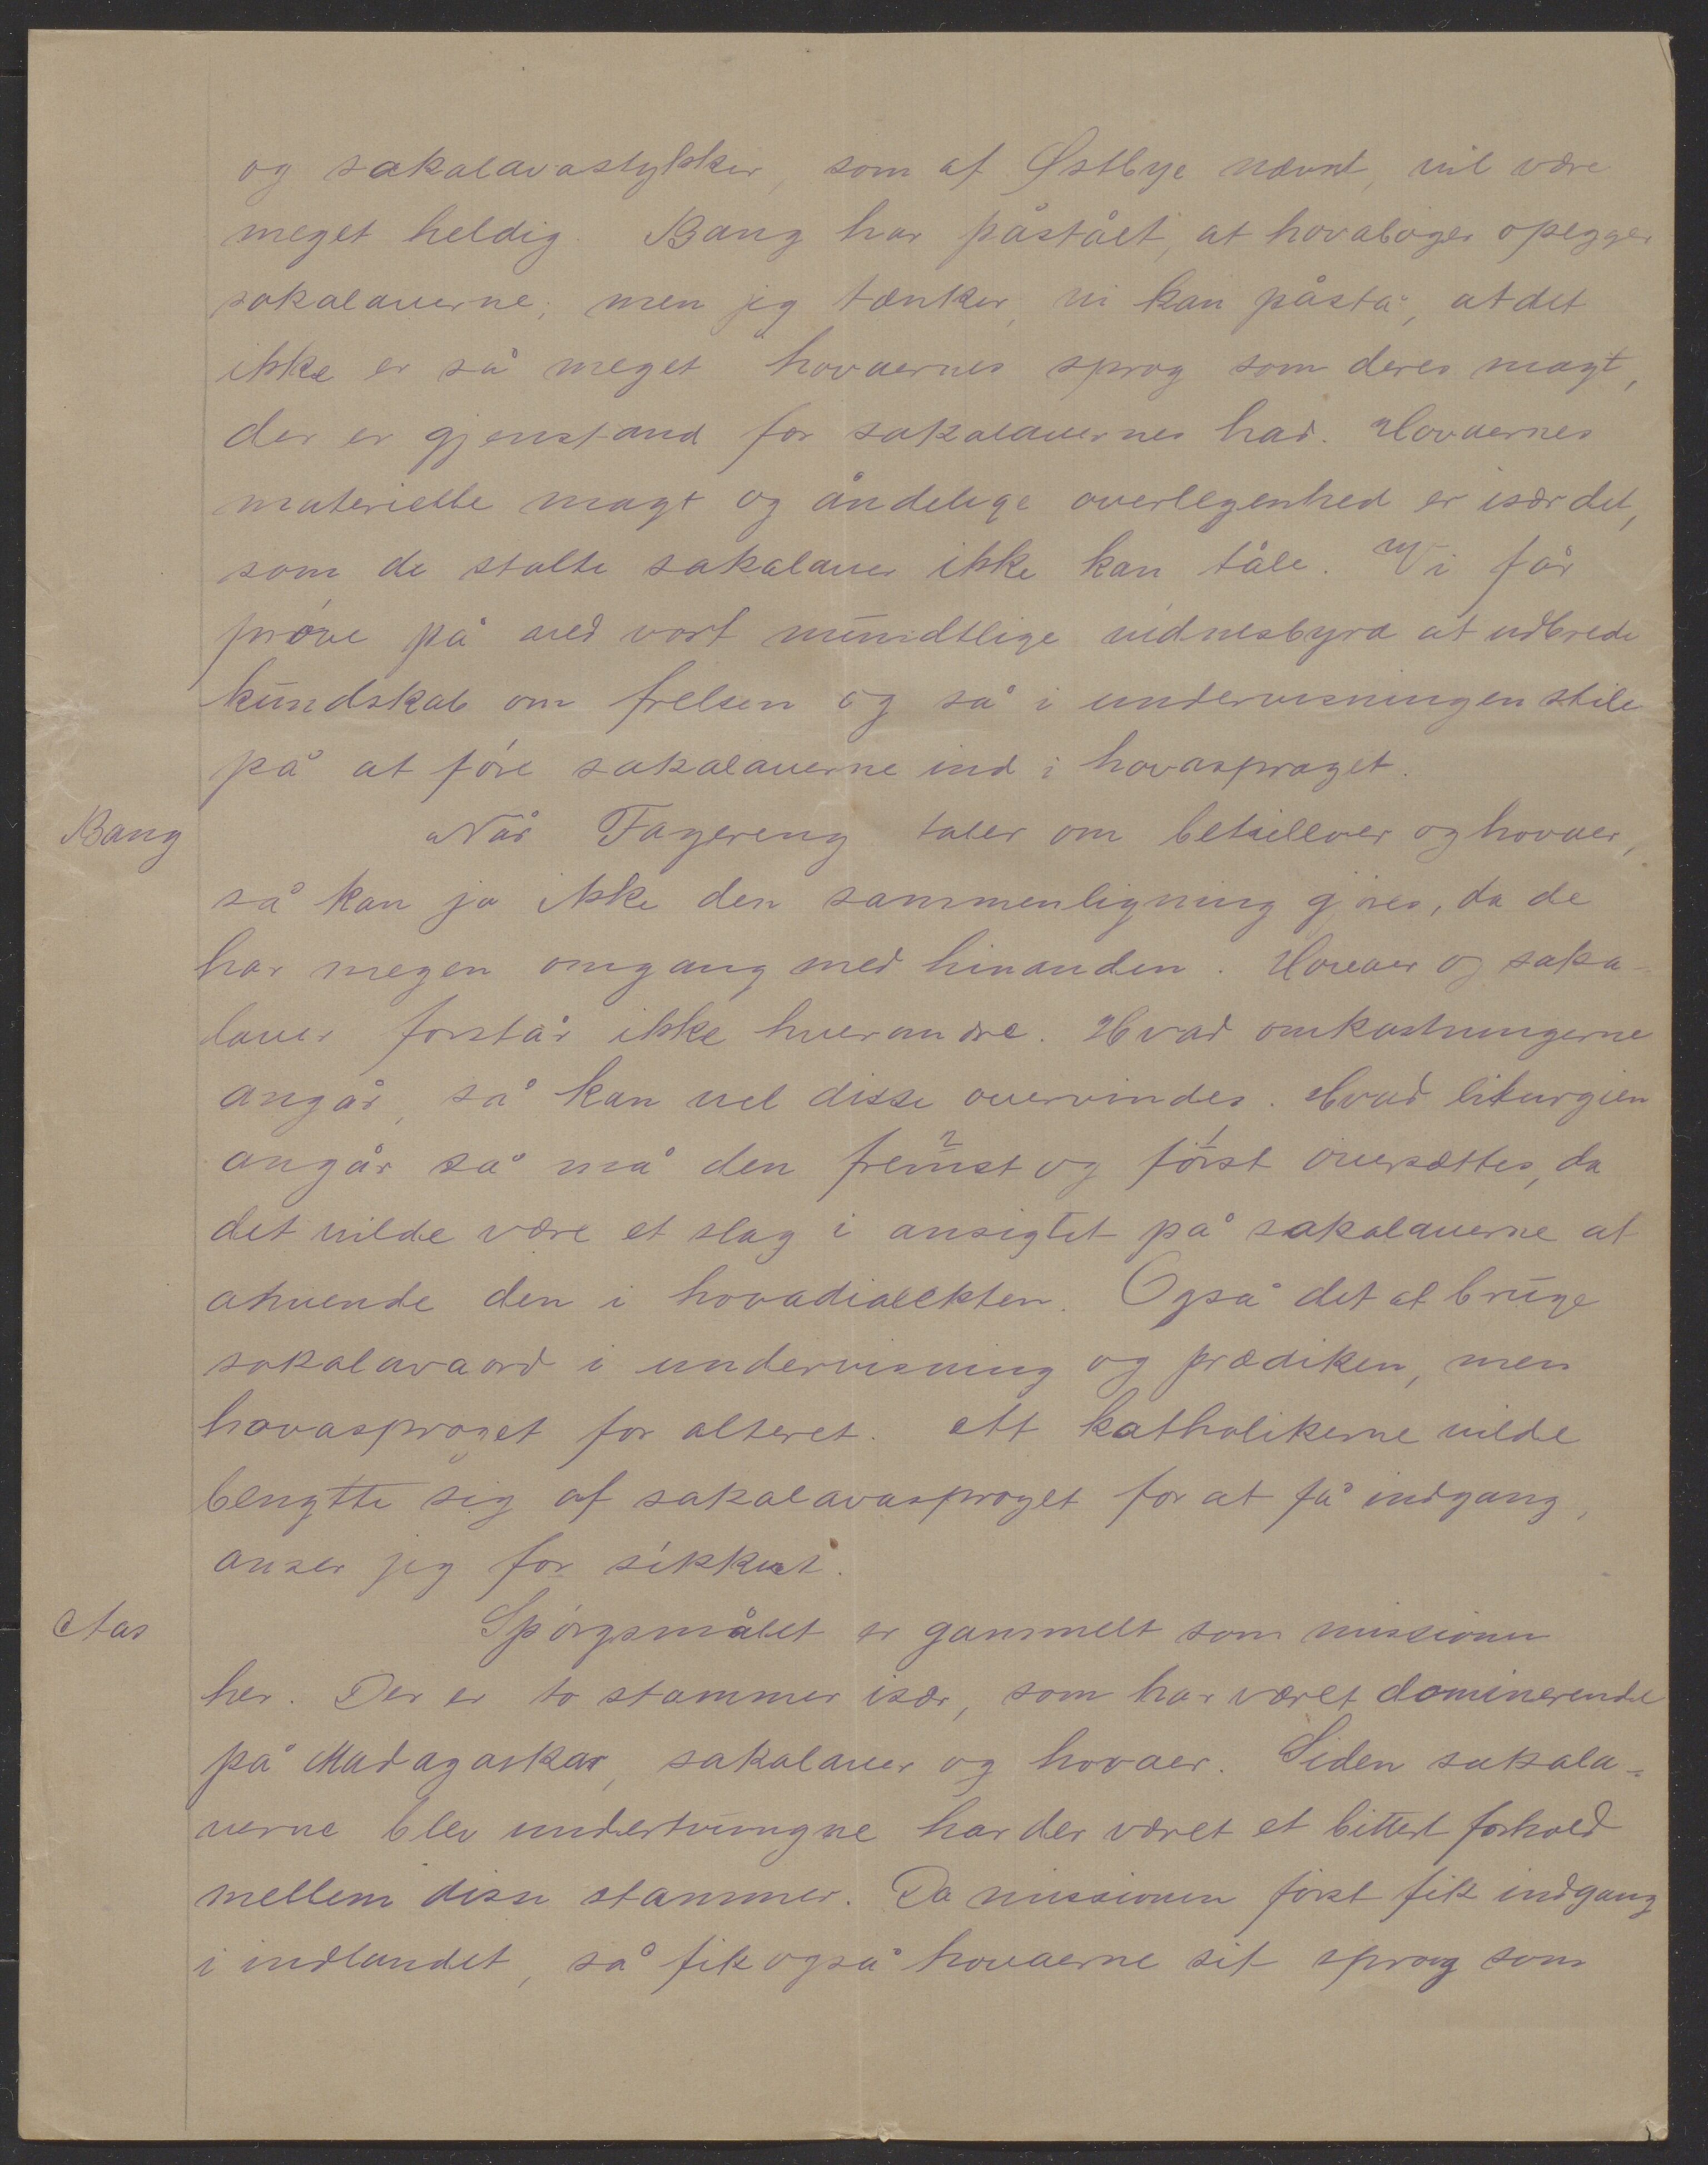 og sakalavastykker, som af Østbye nævnt, vil være
meget heldig. Bang har påstået, at hovabøger opegger
sakalaverne; men jeg tænker, vi kan påstå, at det
ikke er så meget hovaernes sprog som deres magt,
der er gjenstand for sakalavernes had. Hovaernes
materielle magt og åndelige overlegenhed er især det,
som de stolte sakalaver ikke kan tåle. Vi får
prøve på ved vort mundtlige vidnesbyrd at udbrede
kundskab om frelsen og så i undervisningen stile
på at føre sakalaverne ind i hovasproget.
Bang Når Fagereng taler om betsileoer og hovaer,
så kan jo ikke den sammenligning gjøres, da de
har megen omgang med hinanden. Hovaer og saka-
laver forstår ikke hverandre. Hvad omkostningerne
angår, så kan vel disse overvindes. Hvad liturgien
angår så må den fremst og først oversættes, da
det vilde være et slag i ansigtet på sakalaverne at
anvende den i hovadialekten. Også det at bruge
sakalavaord i undervisning og prædiken, men
hovasproget for alteret. At katholikerne vilde
benytte sig af sakalavasproget for at få indgang,
anser jeg for sikkert.
Aas Spørgsmålet er gammelt som missionen
her. Der er to stammer især, som har været dominerende
på Madagaskar, sakalaver og hovaer. Siden sakala-
verne blev undertvungne har der været et bittert forhold
mellem disse stammer. Da missionen først fik indgang
i indlandet, så fik også hovaerne sit sprog som